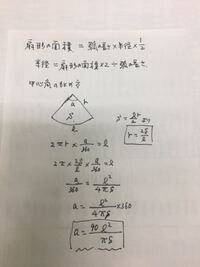 扇形の面積 = 弧の長さ × 半径 × 1/2
半径 = 扇形の面積 × 2 ÷ 弧の長さ
中心角の求め方
a r
S
l
S = lr/2 より
r = 2S/l
2πr × a/360 = l
2π × 2S/l × a/360 = l
a/360 = l²/4πS
a = l²/4πS × 360
a = 90l²/πS